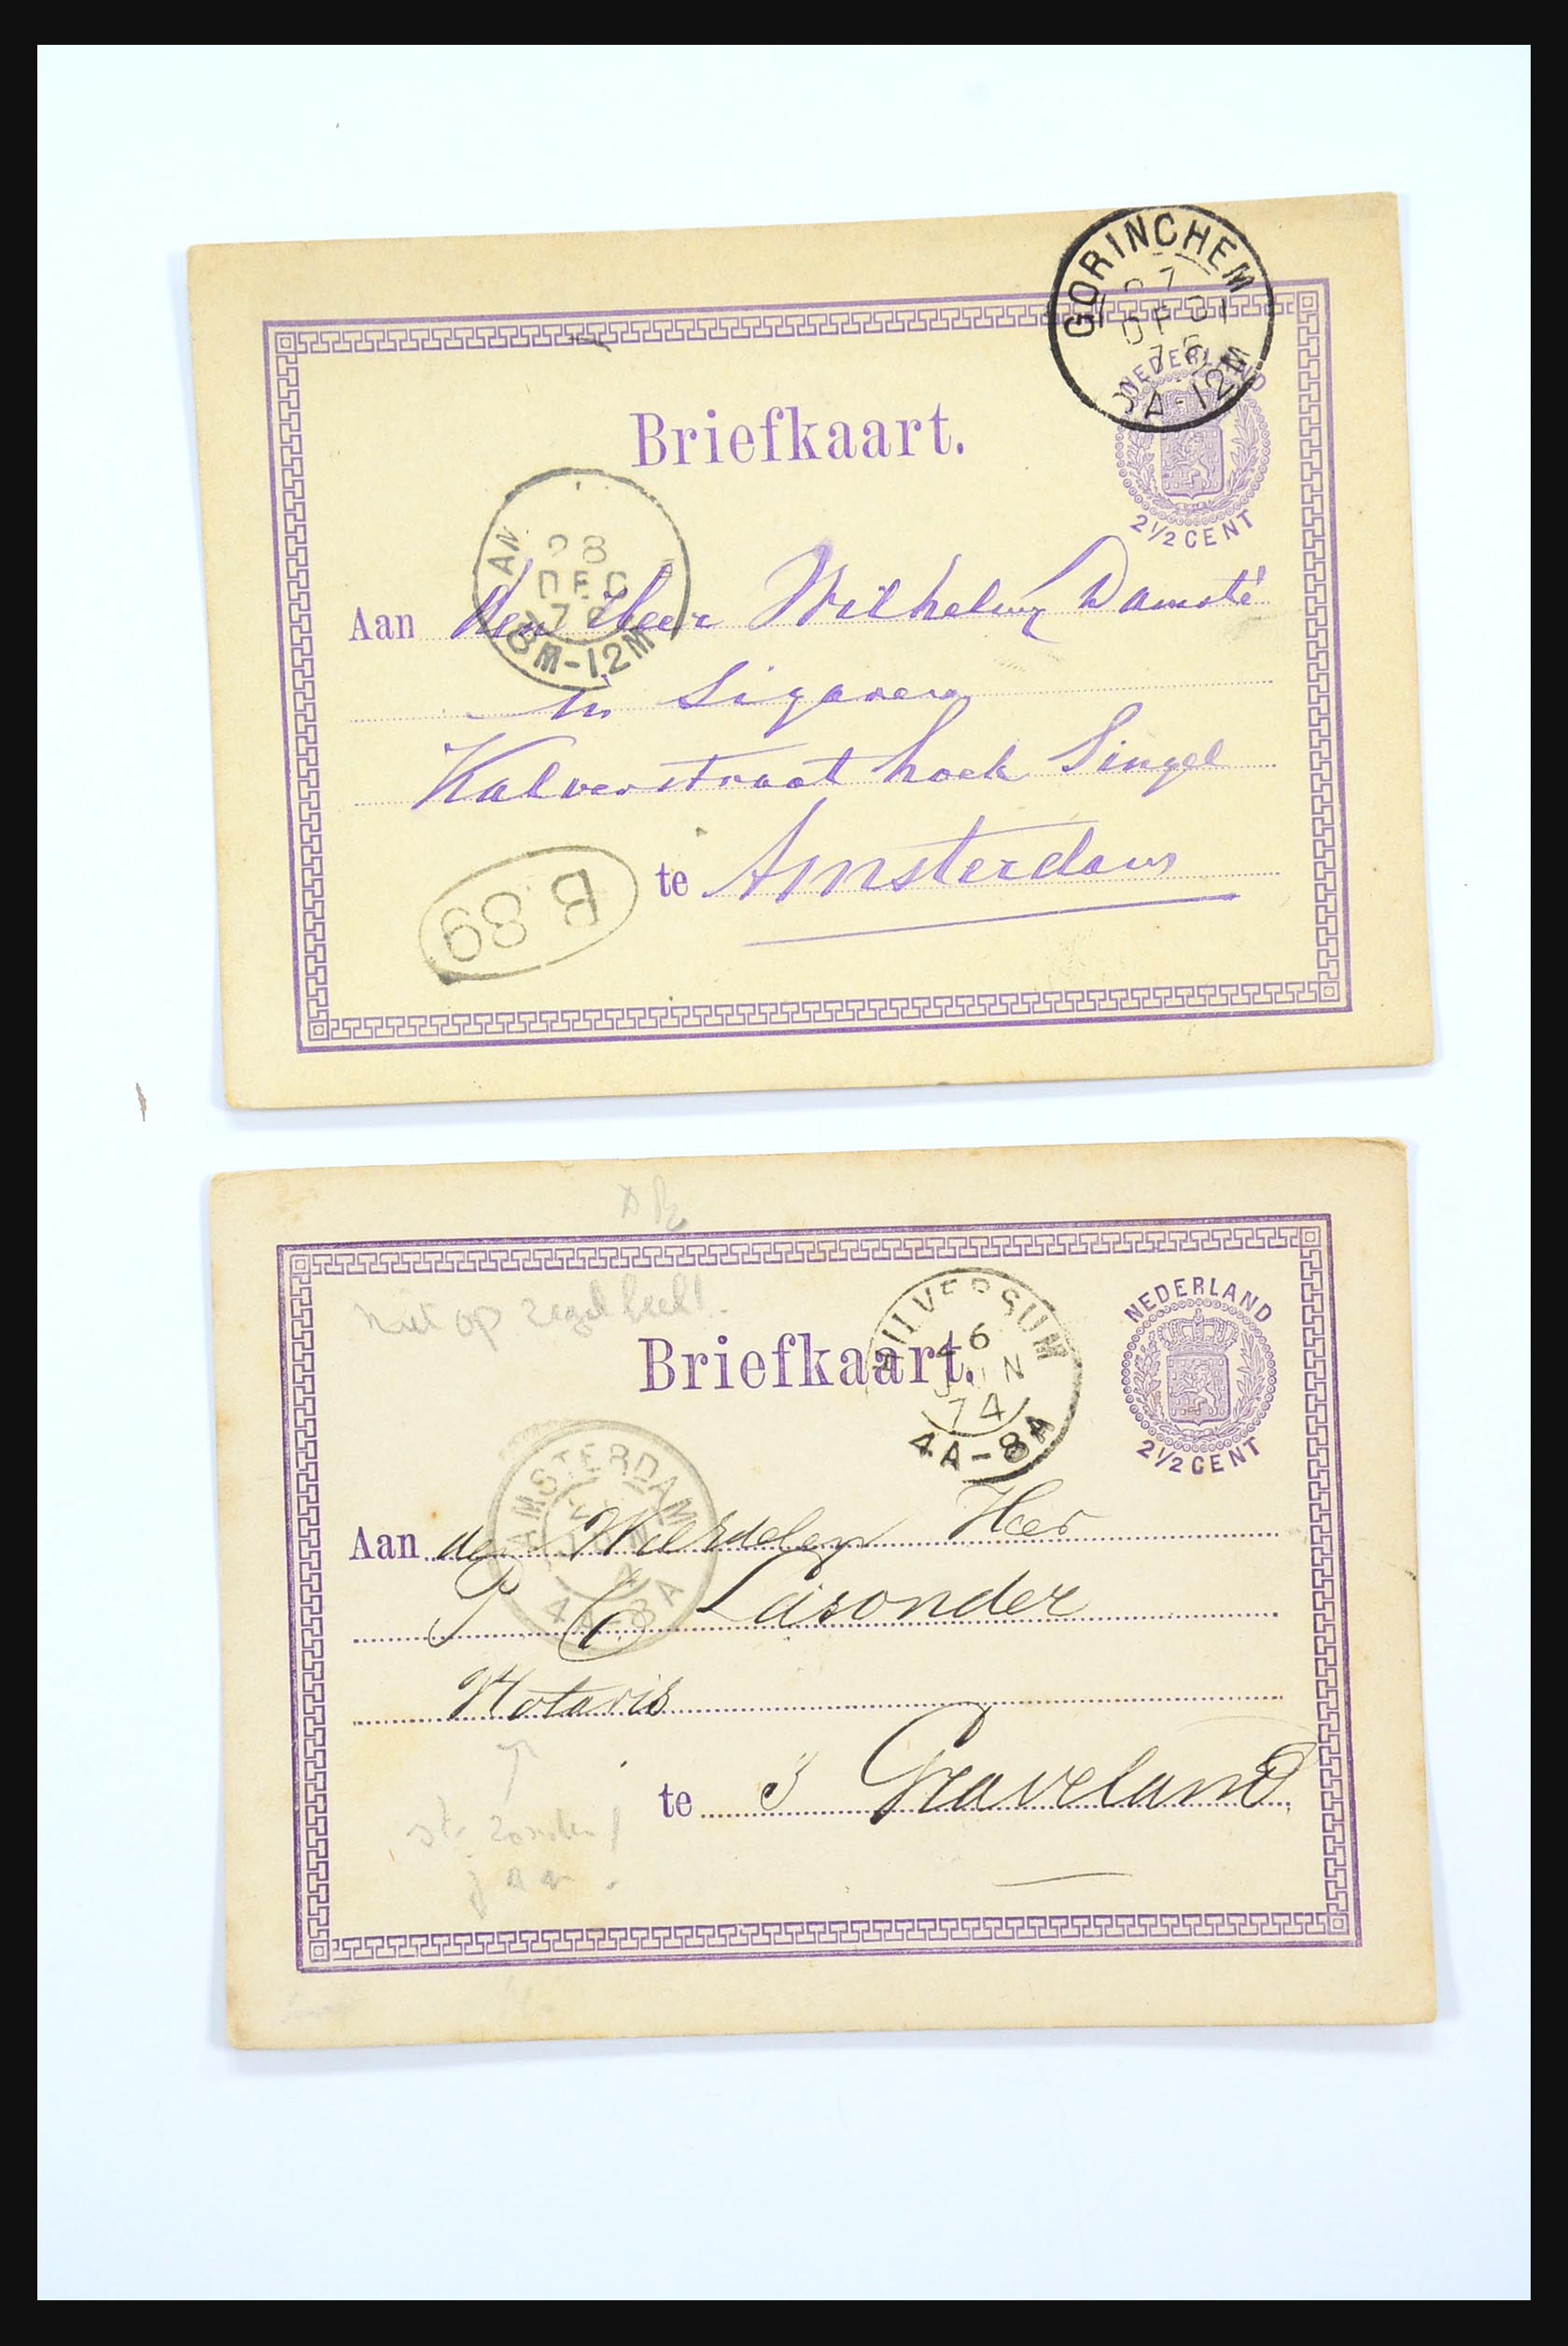 GORINCHEM
27
DEC
76
8A-12M
NEDERLAND
Briefkaart.
2½ CENT
28
DEC
76
8M-12M
Aan den Heer Wilhelm Damsté
in Sigaren
Kalverstraat hoek Singel
te Amsterdam
B 89
Niet op zegel beeld!
HILVERSUM
16
JUN
74
4A-8A
NEDERLAND
Briefkaart.
2½ CENT
AMSTERDAM
4A-8A
Aan den Weledelen Heer
P C Lasonder
Notaris
te 's Graveland
st. zonder
jaar.